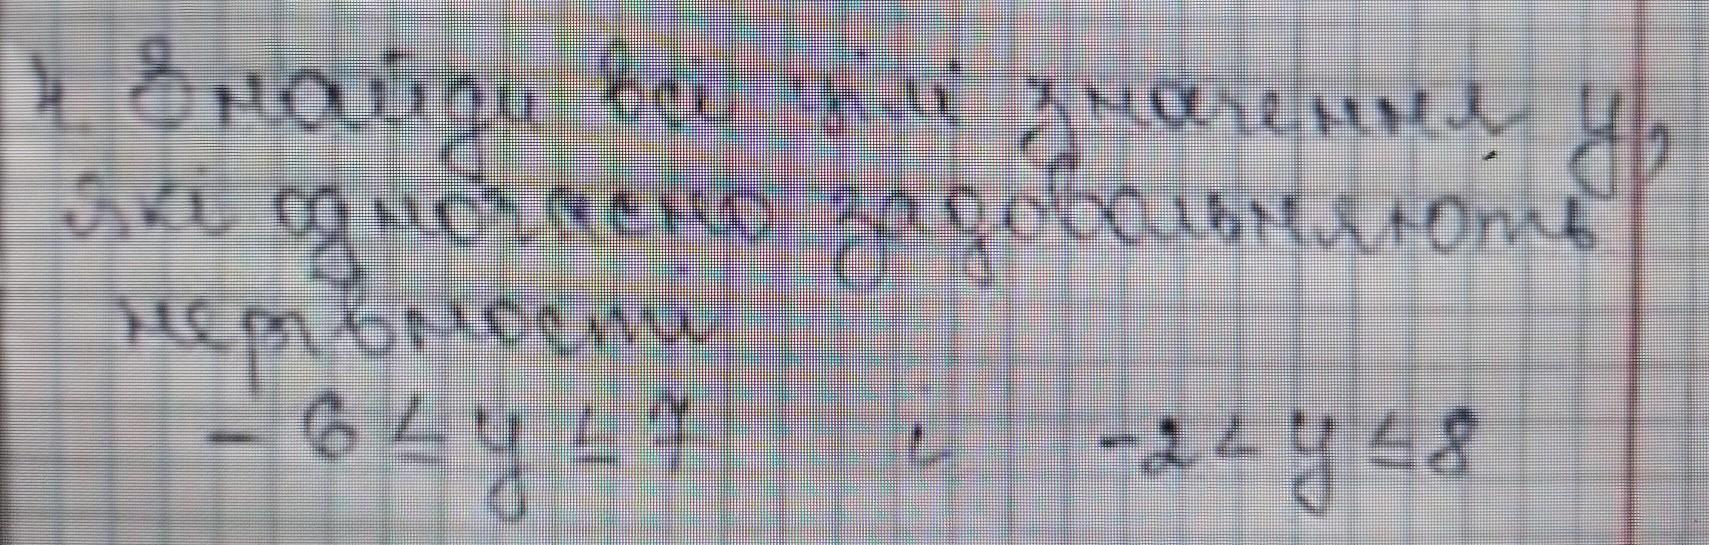 4. Знайди всі цілі значення y,
які одночасно задовольняють
нерівности
- 6 ≤ y ≤ 7 і -2 < y ≤ 8